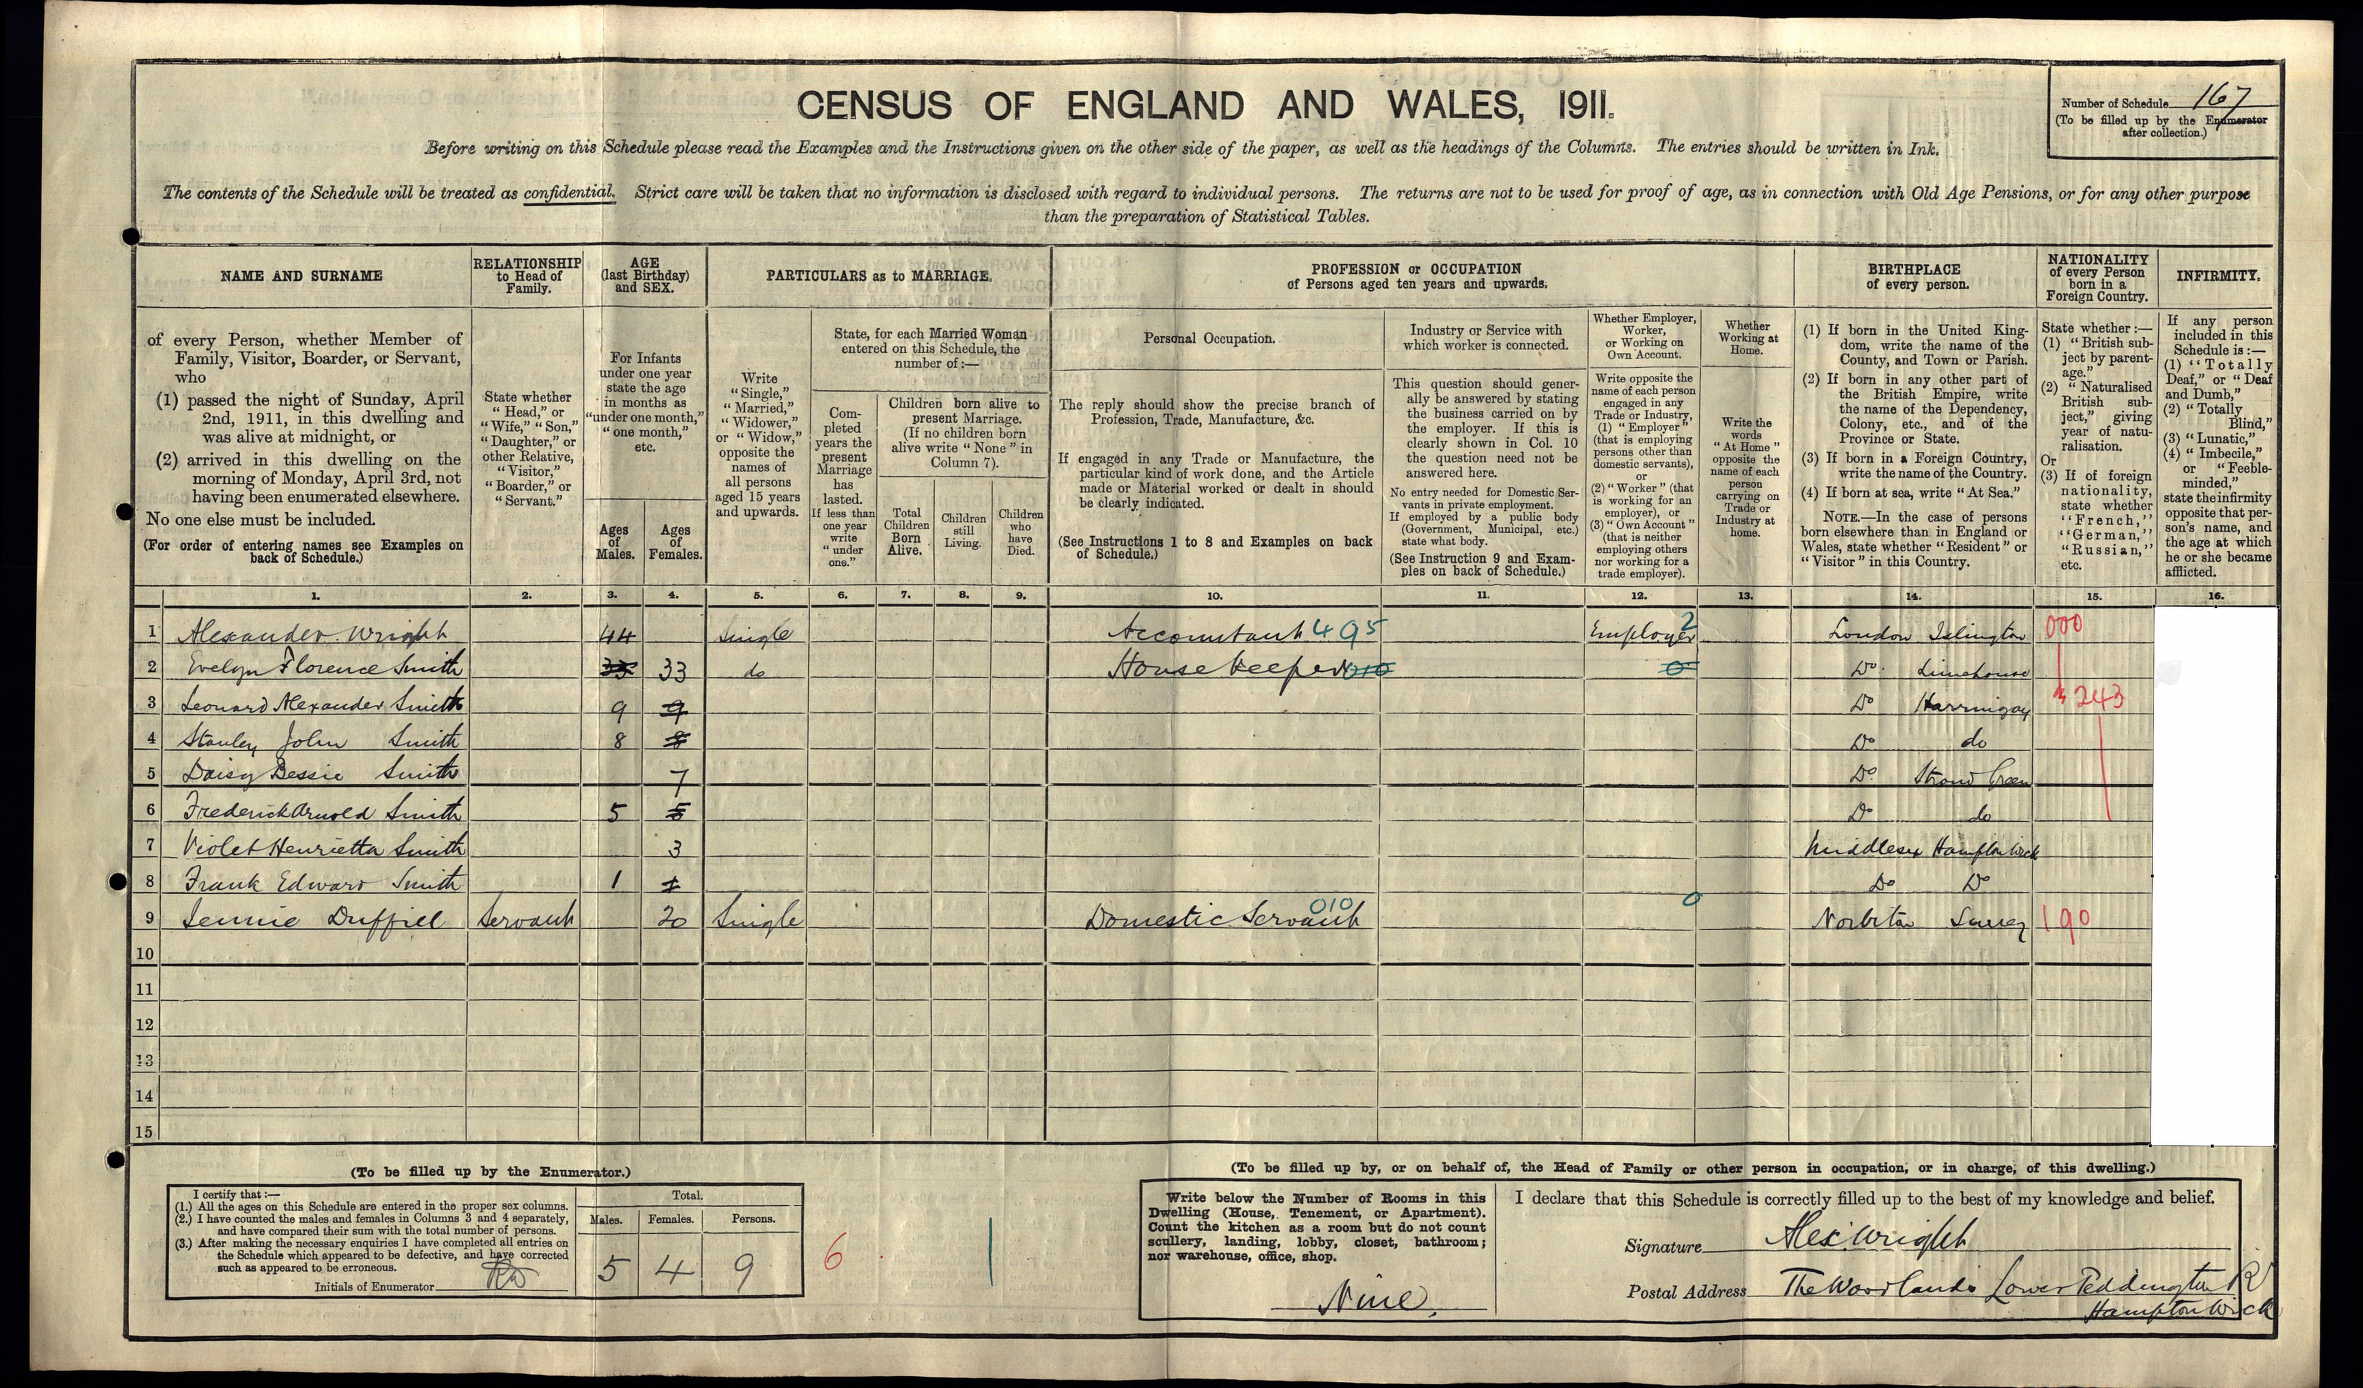 CENSUS OF ENGLAND AND WALES, 1911.
Number of Schedule 167
(To be filled up by the Enumerator
after collection.)
Before writing on this Schedule please read the Examples and the Instructions given on the other side of the paper, as well as the headings of the Columns. The entries should be written in Ink.
The contents of the Schedule will be treated as confidential. Strict care will be taken that no information is disclosed with regard to individual persons. The returns are not to be used for proof of age, as in connection with Old Age Pensions, or for any other purpose
than the preparation of Statistical Tables.
NAME AND SURNAME
of every Person, whether Member of
Family, Visitor, Boarder, or Servant,
who
(1) passed the night of Sunday, April
2nd, 1911, in this dwelling and
was alive at midnight, or
(2) arrived in this dwelling on the
morning of Monday, April 3rd, not
having been enumerated elsewhere.
No one else must be included.
(For order of entering names see Examples on
back of Schedule.)
RELATIONSHIP
to Head of
Family.
State whether
"Head," or
"Wife," "Son,"
"Daughter," or
other Relative,
"Visitor,"
"Boarder," or
"Servant."
AGE
(last Birthday)
and SEX.
For Infants
under one year
state the age
in months as
"under one month,"
"one month,"
etc.
Ages
of
Males.
Ages
of
Females.
PARTICULARS as to MARRIAGE.
Write
"Single,"
"Married,"
"Widower,"
or "Widow,"
opposite the
names of
all persons
aged 15 years
and upwards.
State, for each Married Woman
entered on this Schedule, the
number of:—
Com-
pleted
years the
present
Marriage
has
lasted.
If less than
one year
write
"under
one."
Children born alive to
present Marriage.
(If no children born
alive write "None" in
Column 7).
Total
Children
Born
Alive.
Children
still
Living.
Children
who
have
Died.
PROFESSION or OCCUPATION
of Persons aged ten years and upwards.
Personal Occupation.
The reply should show the precise branch of
Profession, Trade, Manufacture, &c.
If engaged in any Trade or Manufacture, the
particular kind of work done, and the Article
made or Material worked or dealt in should
be clearly indicated.
(See Instructions 1 to 8 and Examples on back
of Schedule.)
Industry or Service with
which worker is connected.
This question should gener-
ally be answered by stating
the business carried on by
the employer. If this is
clearly shown in Col. 10
the question need not be
answered here.
No entry needed for Domestic Ser-
vants in private employment.
If employed by a public body
(Government, Municipal, etc.)
state what body.
(See Instruction 9 and Exam-
ples on back of Schedule.)
Whether Employer,
Worker,
or Working on
Own Account.
Write opposite the
name of each person
engaged in any
Trade or Industry,
(1) "Employer"
(that is employing
persons other than
domestic servants),
or
(2) "Worker" (that
is working for an
employer), or
(3) "Own Account"
(that is neither
employing others
nor working for a
trade employer).
Whether
Working at
Home.
Write the
words
"At Home"
opposite the
name of each
person
carrying on
Trade or
Industry at
home.
BIRTHPLACE
of every person.
(1) If born in the United King-
dom, write the name of the
County, and Town or Parish.
(2) If born in any other part of
the British Empire, write
the name of the Dependency,
Colony, etc., and of the
Province or State.
(3) If born in a Foreign Country,
write the name of the Country.
(4) If born at sea, write "At Sea."
NOTE.—In the case of persons
born elsewhere than in England or
Wales, state whether "Resident" or
"Visitor" in this Country.
NATIONALITY
of every Person
born in a
Foreign Country.
State whether:—
(1) "British sub-
ject by parent-
age."
(2) "Naturalised
British sub-
ject," giving
year of natu-
ralisation.
Or
(3) If of foreign
nationality,
state whether
"French,"
"German,"
"Russian,"
etc.
INFIRMITY.
If any person
included in this
Schedule is:—
(1) "Totally
Deaf," or "Deaf
and Dumb,"
(2) "Totally
Blind,"
(3) "Lunatic,"
(4) "Imbecile,"
or "Feeble-
minded,"
state the infirmity
opposite that per-
son's name, and
the age at which
he or she became
afflicted.
1. 2. 3. 4. 5. 6. 7. 8. 9. 10. 11. 12. 13. 14. 15. 16.
1 Alexander Wright 44 Single Accountant 495 Employer 2 London Islington 000
2 Evelyn Florence Smith 33 33 do Housekeeper 010 0 Do. Limehouse
3 Leonard Alexander Smith 9 9 Do Harringay 243
4 Stanley John Smith 8 8 Do do
5 Daisy Bessie Smith 7 Do. Stroud Green
6 Frederick Arnold Smith 5 5 Do do
7 Violet Henrietta Smith 3 Middlesex Hampton Wick
8 Frank Edward Smith 1 1 Do Do
9 Jennie Duffill Servant 20 Single Domestic Servant 010 0 Norbiton Surrey 190
10
11
12
13
14
15
(To be filled up by the Enumerator.)
I certify that:—
(1.) All the ages on this Schedule are entered in the proper sex columns.
(2.) I have counted the males and females in Columns 3 and 4 separately,
and have compared their sum with the total number of persons.
(3.) After making the necessary enquiries I have completed all entries on
the Schedule which appeared to be defective, and have corrected
such as appeared to be erroneous.
Initials of Enumerator
Total.
Males. Females. Persons.
5 4 9 6 1
(To be filled up by, or on behalf of, the Head of Family or other person in occupation, or in charge, of this dwelling.)
Write below the Number of Rooms in this
Dwelling (House, Tenement, or Apartment).
Count the kitchen as a room but do not count
scullery, landing, lobby, closet, bathroom;
nor warehouse, office, shop.
Nine.
I declare that this Schedule is correctly filled up to the best of my knowledge and belief.
Signature Alex. Wright
Postal Address The Woodlands Lower Teddington Rd
Hampton Wick